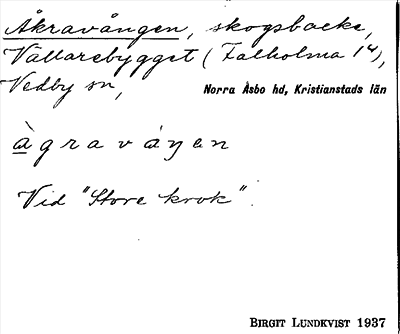 Åkravången, skogsbacke,
Vallarebygget (Falholma 1⁴),
Vedby sn, Norra Åsbo hd, Kristianstads län
àgravάŋen
Vid "Store krok".
BIRGIT LUNDKVIST 1937